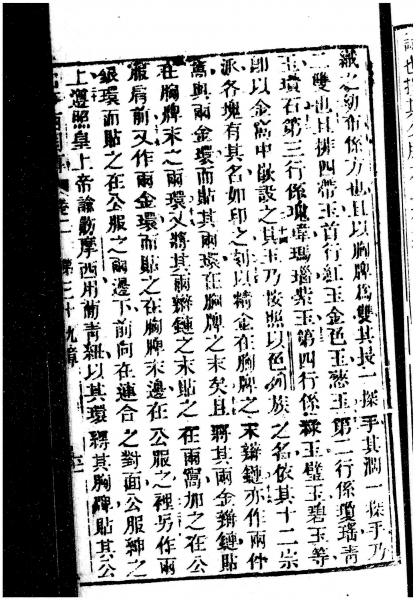 織之幼布係方也且以胸牌為雙其長一探手其濶一探手乃
二雙也且排四帶玉首行紅玉金色玉憗玉第二行係瓊瑤青
玉瓆石第三行係瑰瑋瑪瑙紫玉第四行係綠玉璧玉碧玉等
卽以金窩中嵌設之其玉乃按照以色列族之名依其十二宗
派各塊有其名如印之刻以精金在胸牌之末辮鏈亦作兩件
窩與兩金環而貼其兩環在胸牌之末矣且將其兩金辮鏈貼
在胸牌末之兩環又將其兩辮鏈之末貼之在兩窩加之在公
服肩前又作兩金環而貼之在胸牌末邊在公服之裡另作兩
銀環而貼之在公服之兩邊下前向在連合之對面公服紳之
上遵照皇上帝諭飭摩西用葡青紐以其環繹其胸牌貼其公
卷二 第三十九章